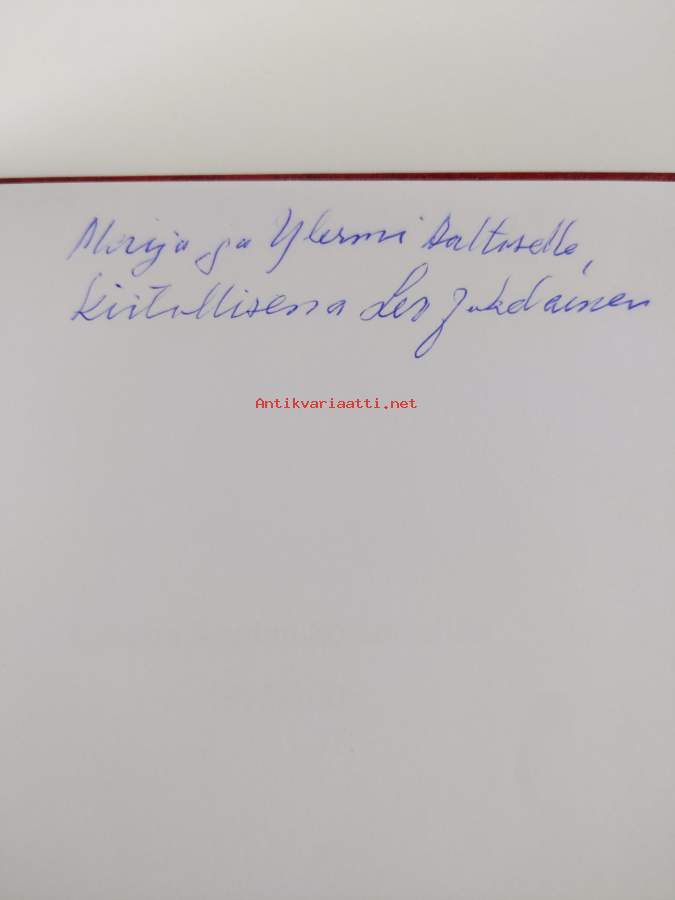 Marija ja Ylermi Aaltoselle,
Kiitollisena Leo
Antikvariaatti.net